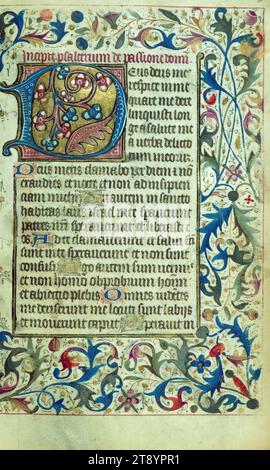 Incipit psalterium de passione domi
Deus deus me
respice in me
quare me dere
linquisti lon
ge a salute me
a verba delicto
rum meorum.
Deus meus clamabo per diem et non
exaudies et nocte et non ad insipien
tiam michi Tu autem in sancto
habitas laus israel In te speraverunt
patres nri speraverunt et liberasti
eos Ad te clamaverunt et salvi facti
sunt in te speraverunt et non sunt
confusi Ego autem sum vermis
et non homo obprobrium homi
et abiectio plebis Omnes videtes
me deriserunt me locuti sunt labijs
et moverunt caput Speravit in
alamy - 2T8YPR1